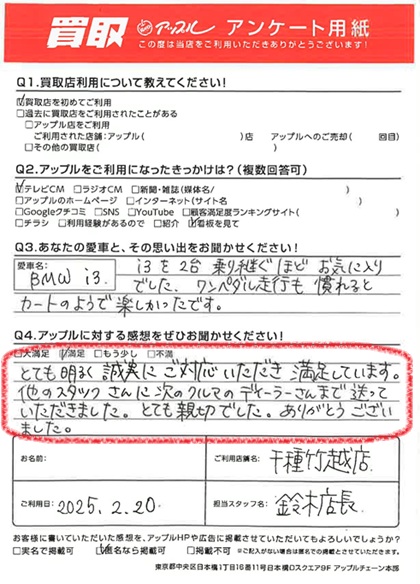 買取 アップル アンケート用紙
この度は当店をご利用いただきありがとうございます!
Q1.買取店利用について教えてください!
☑買取店を初めてご利用
□過去に買取店をご利用されたことがある
□アップル店をご利用
ご利用された店舗:アップル( )店 アップルへのご売却( 回目)
□その他の買取店( )
Q2.アップルをご利用になったきっかけは?(複数回答可)
☑テレビCM □ラジオCM □新聞・雑誌(媒体名/ )
□アップルのホームページ □インターネット(サイト名 )
□Googleクチコミ □SNS □YouTube □顧客満足度ランキングサイト( )
□チラシ □利用経験があるので □紹介 ☑看板を見て
Q3.あなたの愛車と、その思い出をお聞かせください!
愛車名: BMW i3. i3を2台 乗り継ぐほど お気に入り
でした。ワンペダル走行も慣れると
カートのようで楽しかったです。
Q4.アップルに対する感想をぜひお聞かせください!
□大満足 ☑満足 □もう少し □不満
とても明るく誠実にご対応いただき満足しています。
他のスタッフさんに次のクルマのディーラーさんまで送って
いただきました。とても親切でした。ありがとうござい
ました。
お名前: ご利用店舗名: 千種竹越店
ご利用日: 2025.2.20 担当スタッフ名: 鈴木店長
お客様に書いていただいた感想を、アップルHPや広告に掲載させていただいてもよろしいでしょうか?
□実名で掲載可 ☑匿名なら掲載可 □掲載不可 ※ご記入がない場合は匿名での掲載とさせていただきます。
東京都中央区日本橋1丁目16番11号日本橋Dスクエア9F アップルチェーン本部